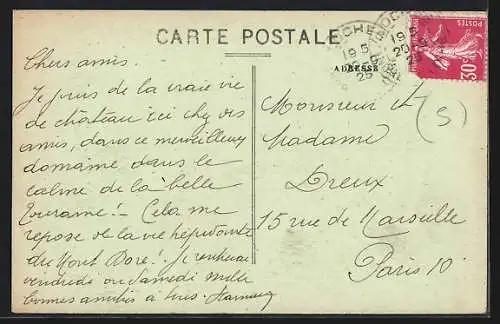 CARTE POSTALE
ADRESSE
Chers amis.
Je jouis de la vraie vie
de château ici chez des
amis, dans ce merveilleux
domaine dans le
calme de la belle
Touraine! - Cela me
repose de la vie trépidante
du Mont Dore! Je rentrerai
vendredi ou Samedi. Mille
bonnes amitiés à tous.
Monsieur et
Madame
Dreux
15 rue de Marseille
Paris 10
(S)
POSTES
30c
19 5
20
25
19 5
20
25